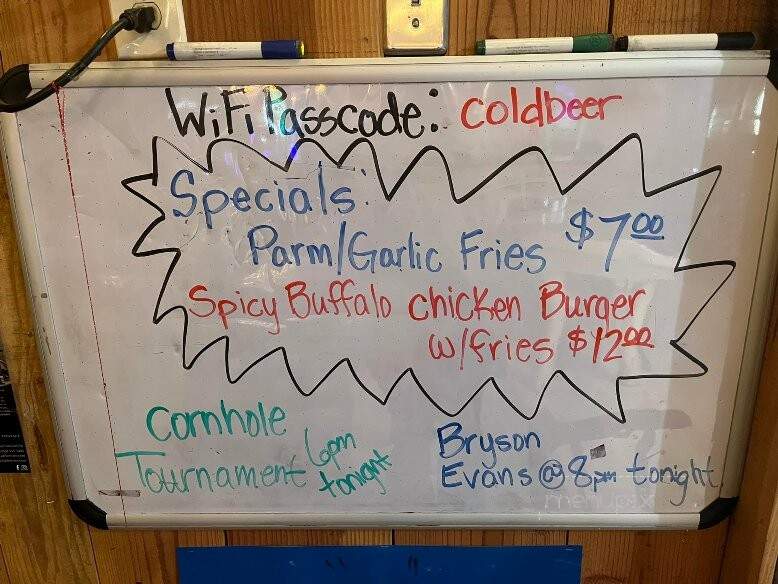 WiFi Passcode: coldbeer
Specials:
Parm/Garlic Fries $7.00
Spicy Buffalo chicken Burger
w/fries $12.00
Cornhole
Tournament 6pm
tonight
Bryson
Evans @ 8pm tonight